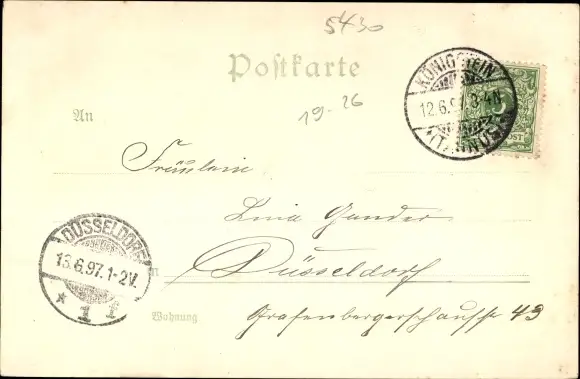 5430
Postkarte
KÖNIGSTEIN
12.6.97. 3-4N.
(TAUNUS)
An
19-26
Fräulein
Lina Gander
DÜSSELDORF
13.6.97. 1-2V.
* 1 f
in Düsseldorf
Wohnung Grafenbergerschaussee 43